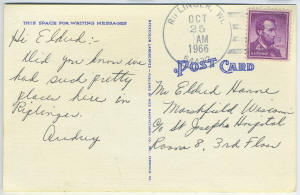 THIS SPACE FOR WRITING MESSAGES
Hi Eldred:-
Did you know we
had such pretty
places here in
Riplinger.
Audrey
RIPLINGER, WI
OCT
25
AM
1966
POST CARD
Mr Eldred Hanne
Marshfield Wisconsin
C/o St Josephs Hospital
Room 8, 3rd Floor